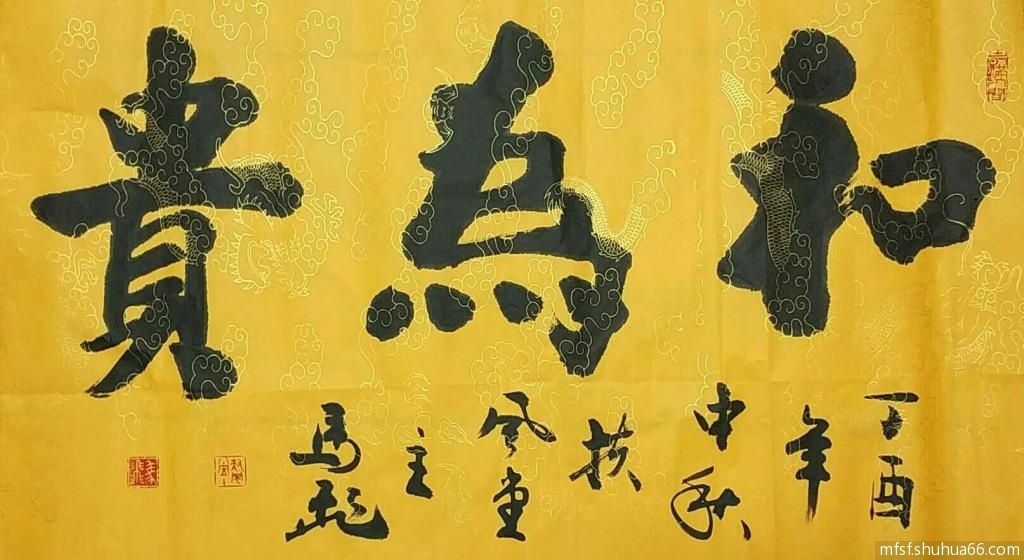 和為貴
丁酉
年
中秋
扶
风堂
主
馬彪
mfsf.shuhua66.com